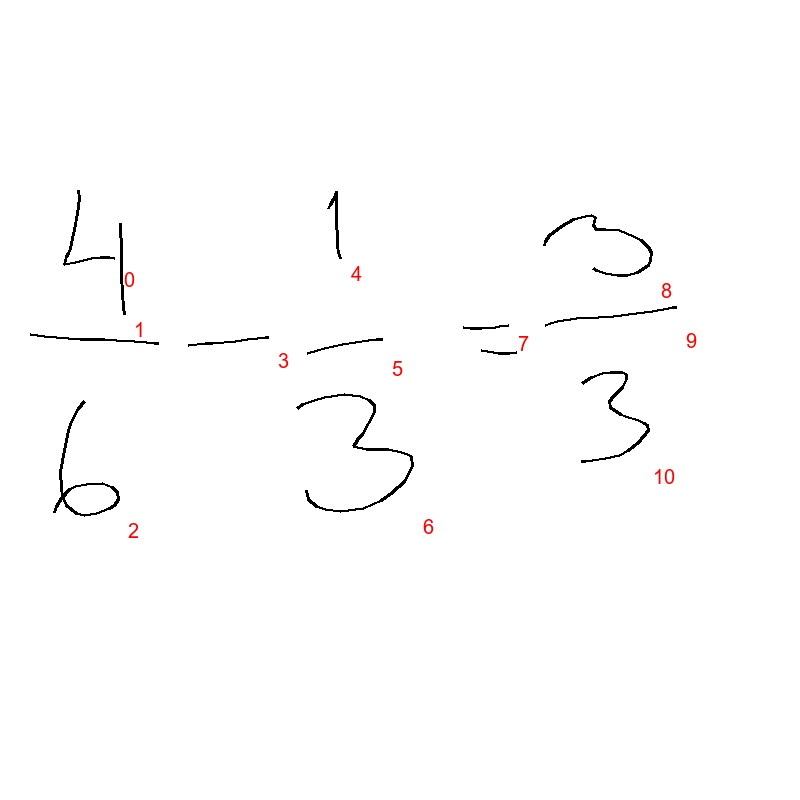 4/6 - 1/3 = 3/3
0 1 2 3 4 5 6 7 8 9 10